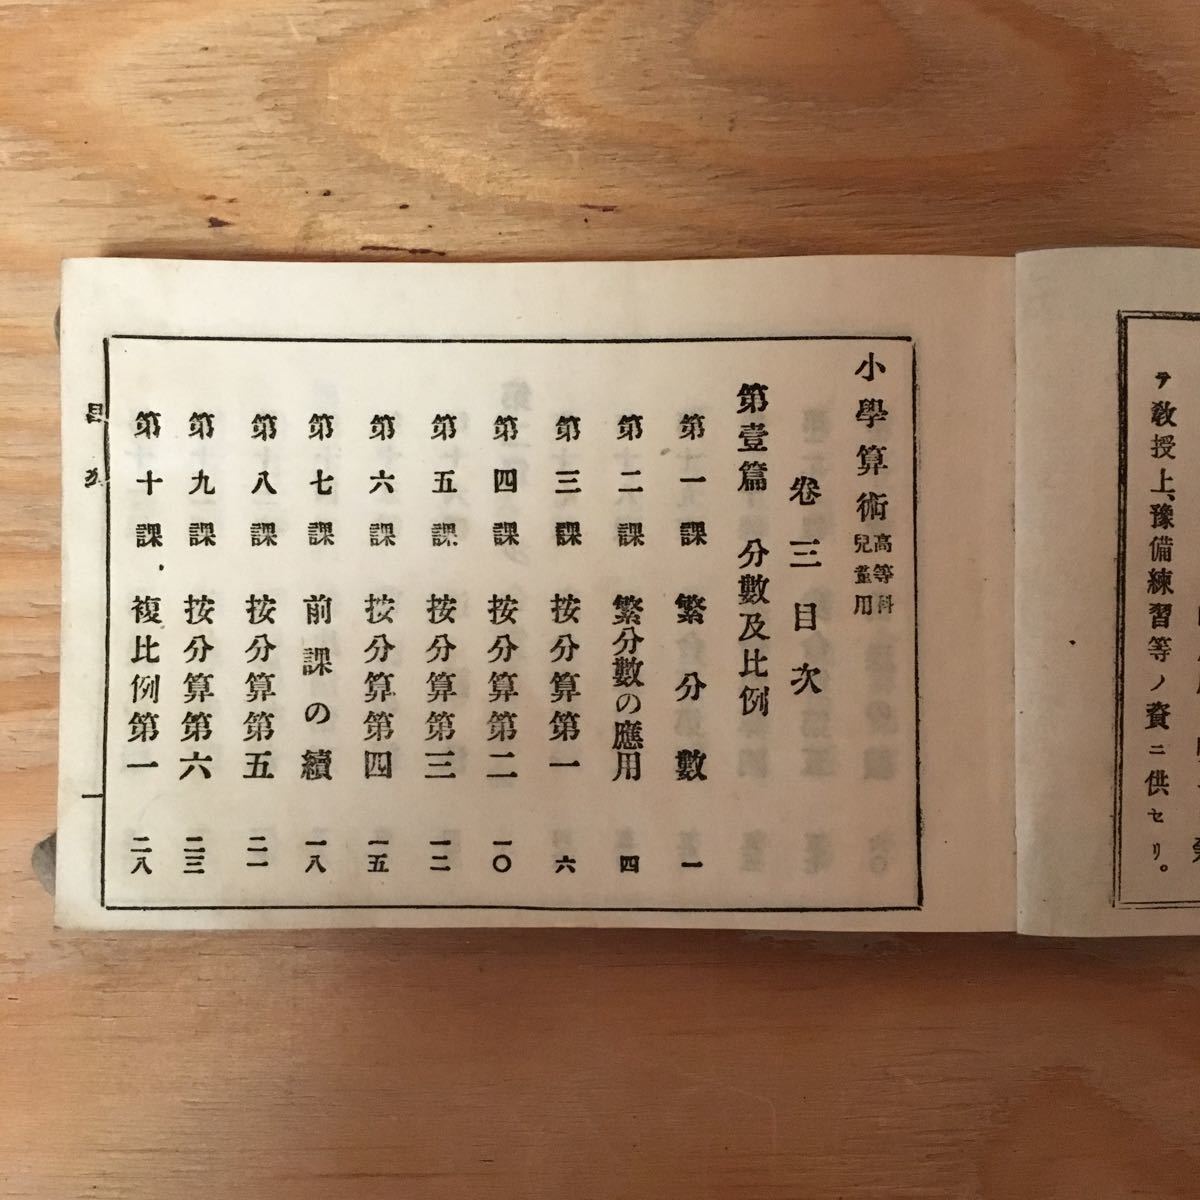 テ教授上、豫備練習等ノ資ニ供セリ。
小學算術 高等科兒童用
卷三目次
第壹篇 分數及比例
第一課 繁分數 一
第二課 繁分數の應用 四
第三課 按分算第一 六
第四課 按分算第二 一〇
第五課 按分算第三 一二
第六課 按分算第四 一五
第七課 前課の續 一八
第八課 按分算第五 二一
第九課 按分算第六 二三
第十課 複比例第一 二八
目次 一